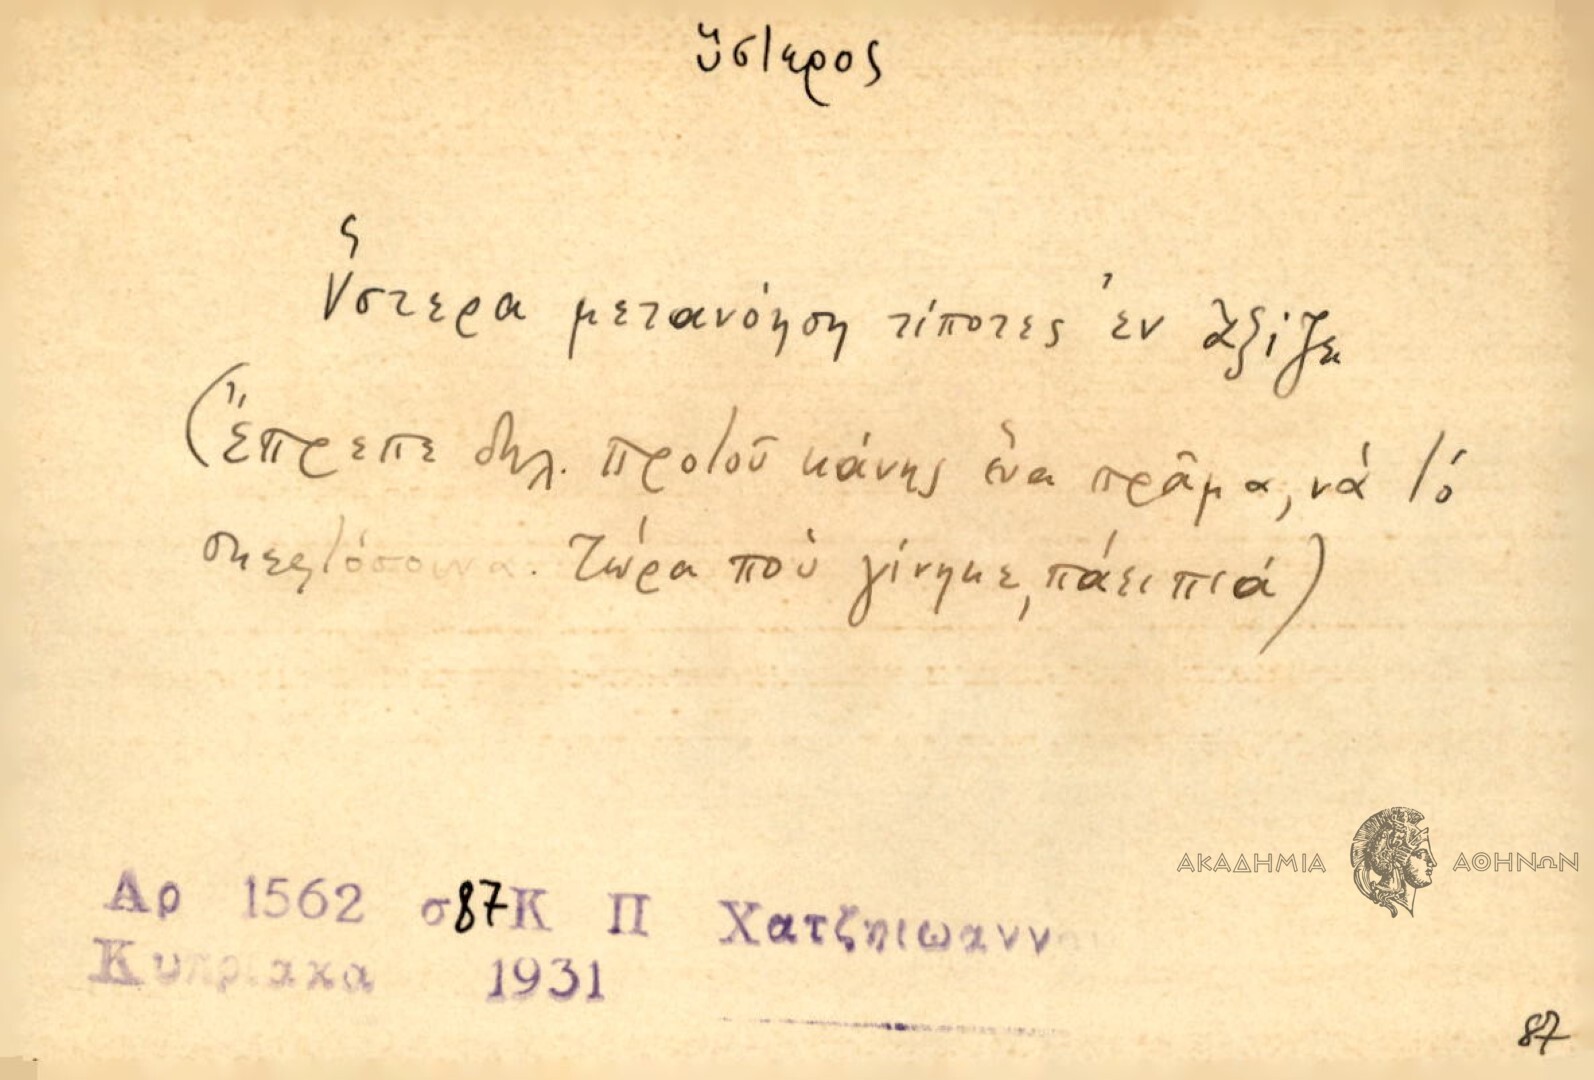 ὕστερος
Ὕστερα μετανόηση τίποτες ἐν ἀξίζει
(Ἔπρεπε δηλ. προτοῦ κάνης ἕνα πρᾶμα, νὰ τό
σκεφτόσουνα. Τώρα ποὺ γίνηκε, πάει πιά)
ΑΚΑΔΗΜΙΑ ΑΘΗΝΩΝ
Αρ 1562 σ 87 Κ Π Χατζηιωάννου
Κυπριακα 1931
87